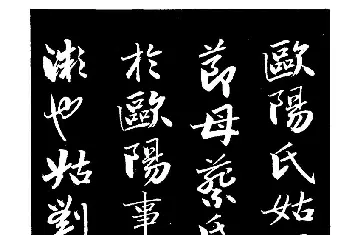 歐陽氏姑
節母蔡氏
於歐陽事
也姑劉